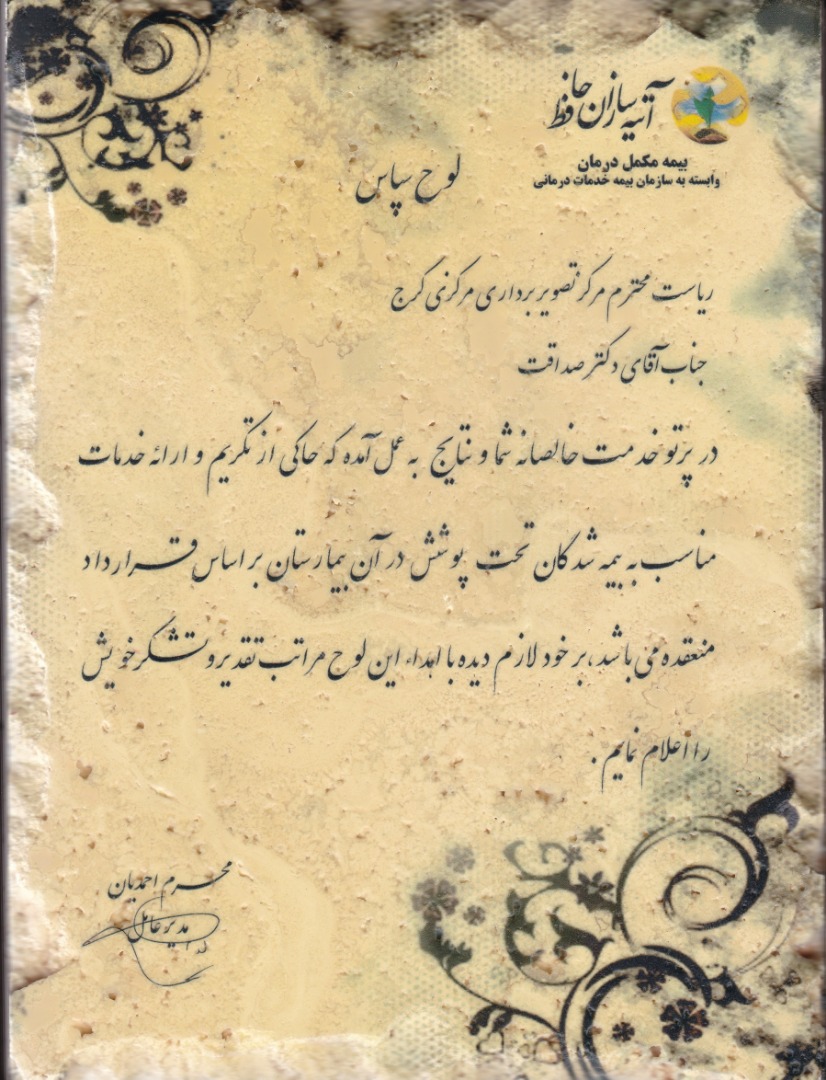 آتیه سازان حافظ
بیمه مکمل درمان
وابسته به سازمان بیمه خدمات درمانی
لوح سپاس
ریاست محترم مرکز تصویربرداری مرکزی کرج
جناب آقای دکتر صداقت
در پرتو خدمت خالصانه شما و نتایج به عمل آمده که حاکی از تکریم و ارائه خدمات
مناسب به بیمه شدگان تحت پوشش در آن بیمارستان بر اساس قرارداد
منعقده می باشد، بر خود لازم دیده با اهداء این لوح مراتب تقدیر و تشکر خویش
را اعلام نمایم .
محرم احمدیان
مدیر عامل